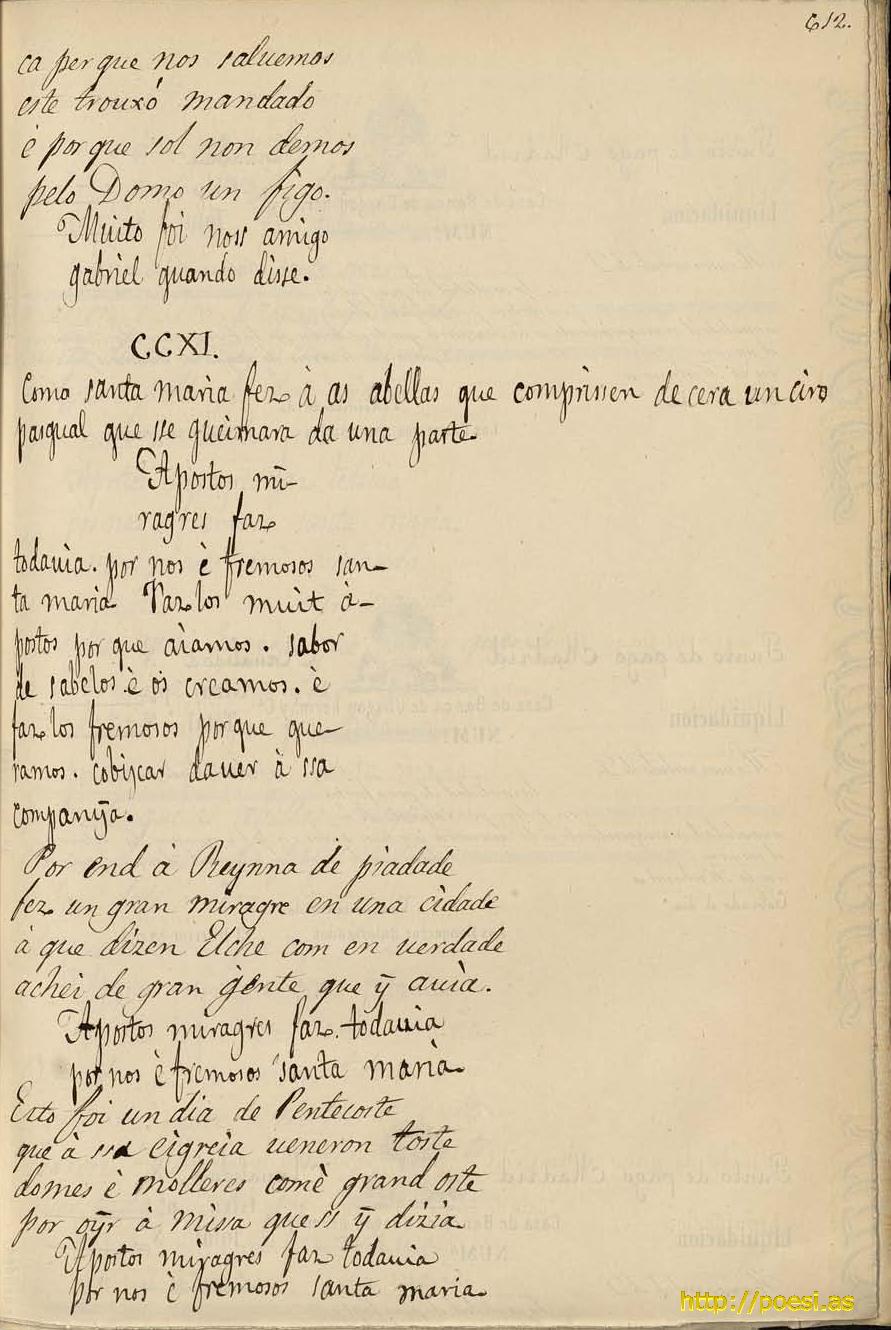 612.
ca per que nos saluemos
este trouxó mandado
è por que sol non demos
pelo Domo un figo.
Muito foi noss amigo
gabriel quando disse.
CCXI.
Como santa maria fez à as abellas que comprissen de cera un ciro
pasqual que sse queimara da una parte
Apostos mi-
ragres faz
todauia. por nos è fremosos san-
ta maria Faz los muit à-
postos por que aiamos. sabor
de sabelos è os creamos. è
faz los fremosos por que que-
ramos. cobiiçar dauer à ssa
companỹa.
Por end à Reynna de piadade
fez un gran miragre en una cidade
à que dizen Elche com en uerdade
achei de gran gente que ỹ auia.
Apostos miragres faz todauia
por nos è fremosos santa maria
Esto foi un dia de Pentecoste
que à ssa eigreia ueneron toste
domes è molleres comè grand oste
por oỹr à missa que ss ỹ dizia
Apostos miragres faz todauia
por nos è fremosos santa maria
http://poesi.as